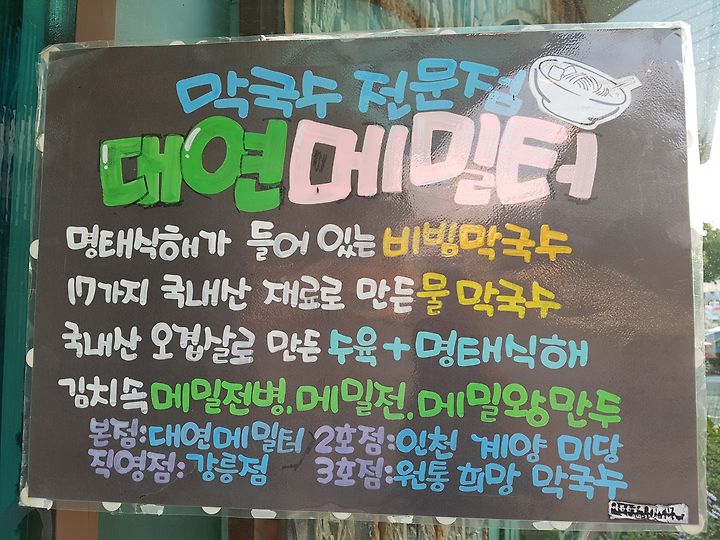 막국수 전문점
대연메밀터
명태식해가 들어 있는 비빔막국수
17가지 국내산 재료로 만든 물 막국수
국내산 오겹살로 만든 수육+명태식해
김치속 메밀전병, 메밀전, 메밀왕만두
본점:대연메밀터 2호점:인천 계양 미당
직영점:강릉점 3호점:원통 희망 막국수